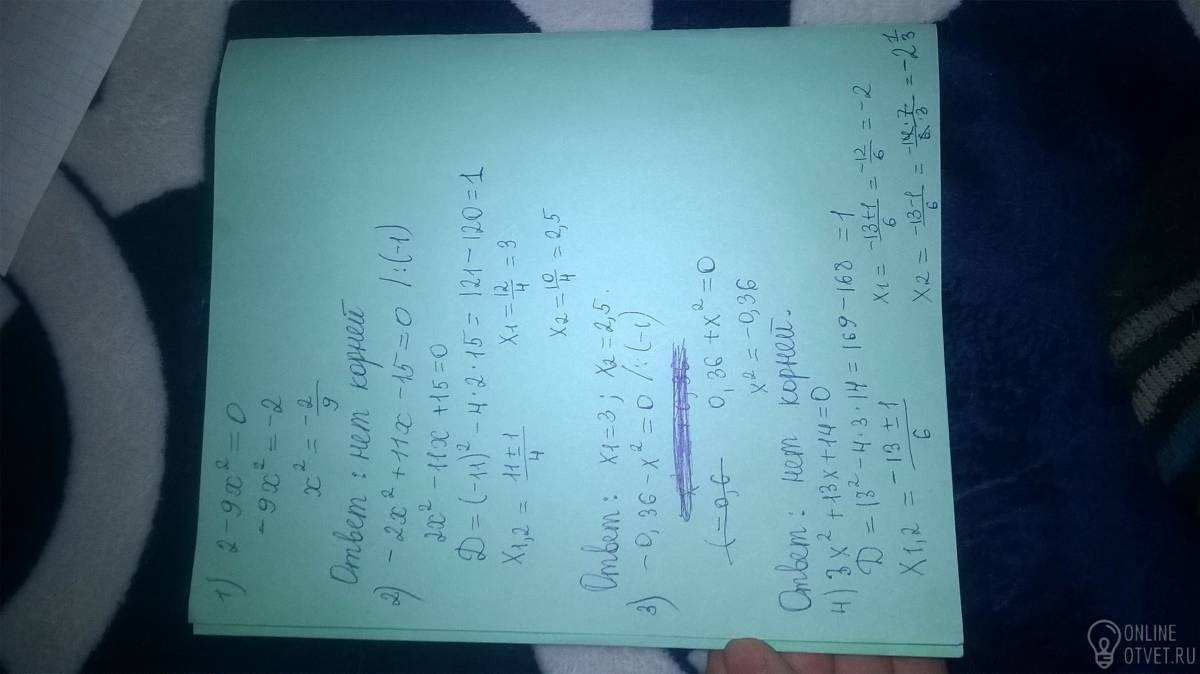 1) 2 - 9x² = 0
- 9x² = -2
x² = -2/9
Ответ: нет корней
2) -2x² + 11x - 15 = 0 /:(-1)
2x² - 11x + 15 = 0
D = (-11)² - 4·2·15 = 121 - 120 = 1
x1,2 = 11±1/4 x1 = 12/4 = 3
x2 = 10/4 = 2,5
Ответ: x1 = 3; x2 = 2,5.
3) -0,36 - x² = 0 /:(-1)
0,36 + x² = 0
x² = -0,36
Ответ: нет корней.
4) 3x² + 13x + 14 = 0
D = 13² - 4·3·14 = 169 - 168 = 1
x1,2 = -13±1/6 x1 = -13+1/6 = -12/6 = -2
x2 = -13-1/6 = -14·7/6·3 = -2 1/3
ONLINE
OTVET.RU